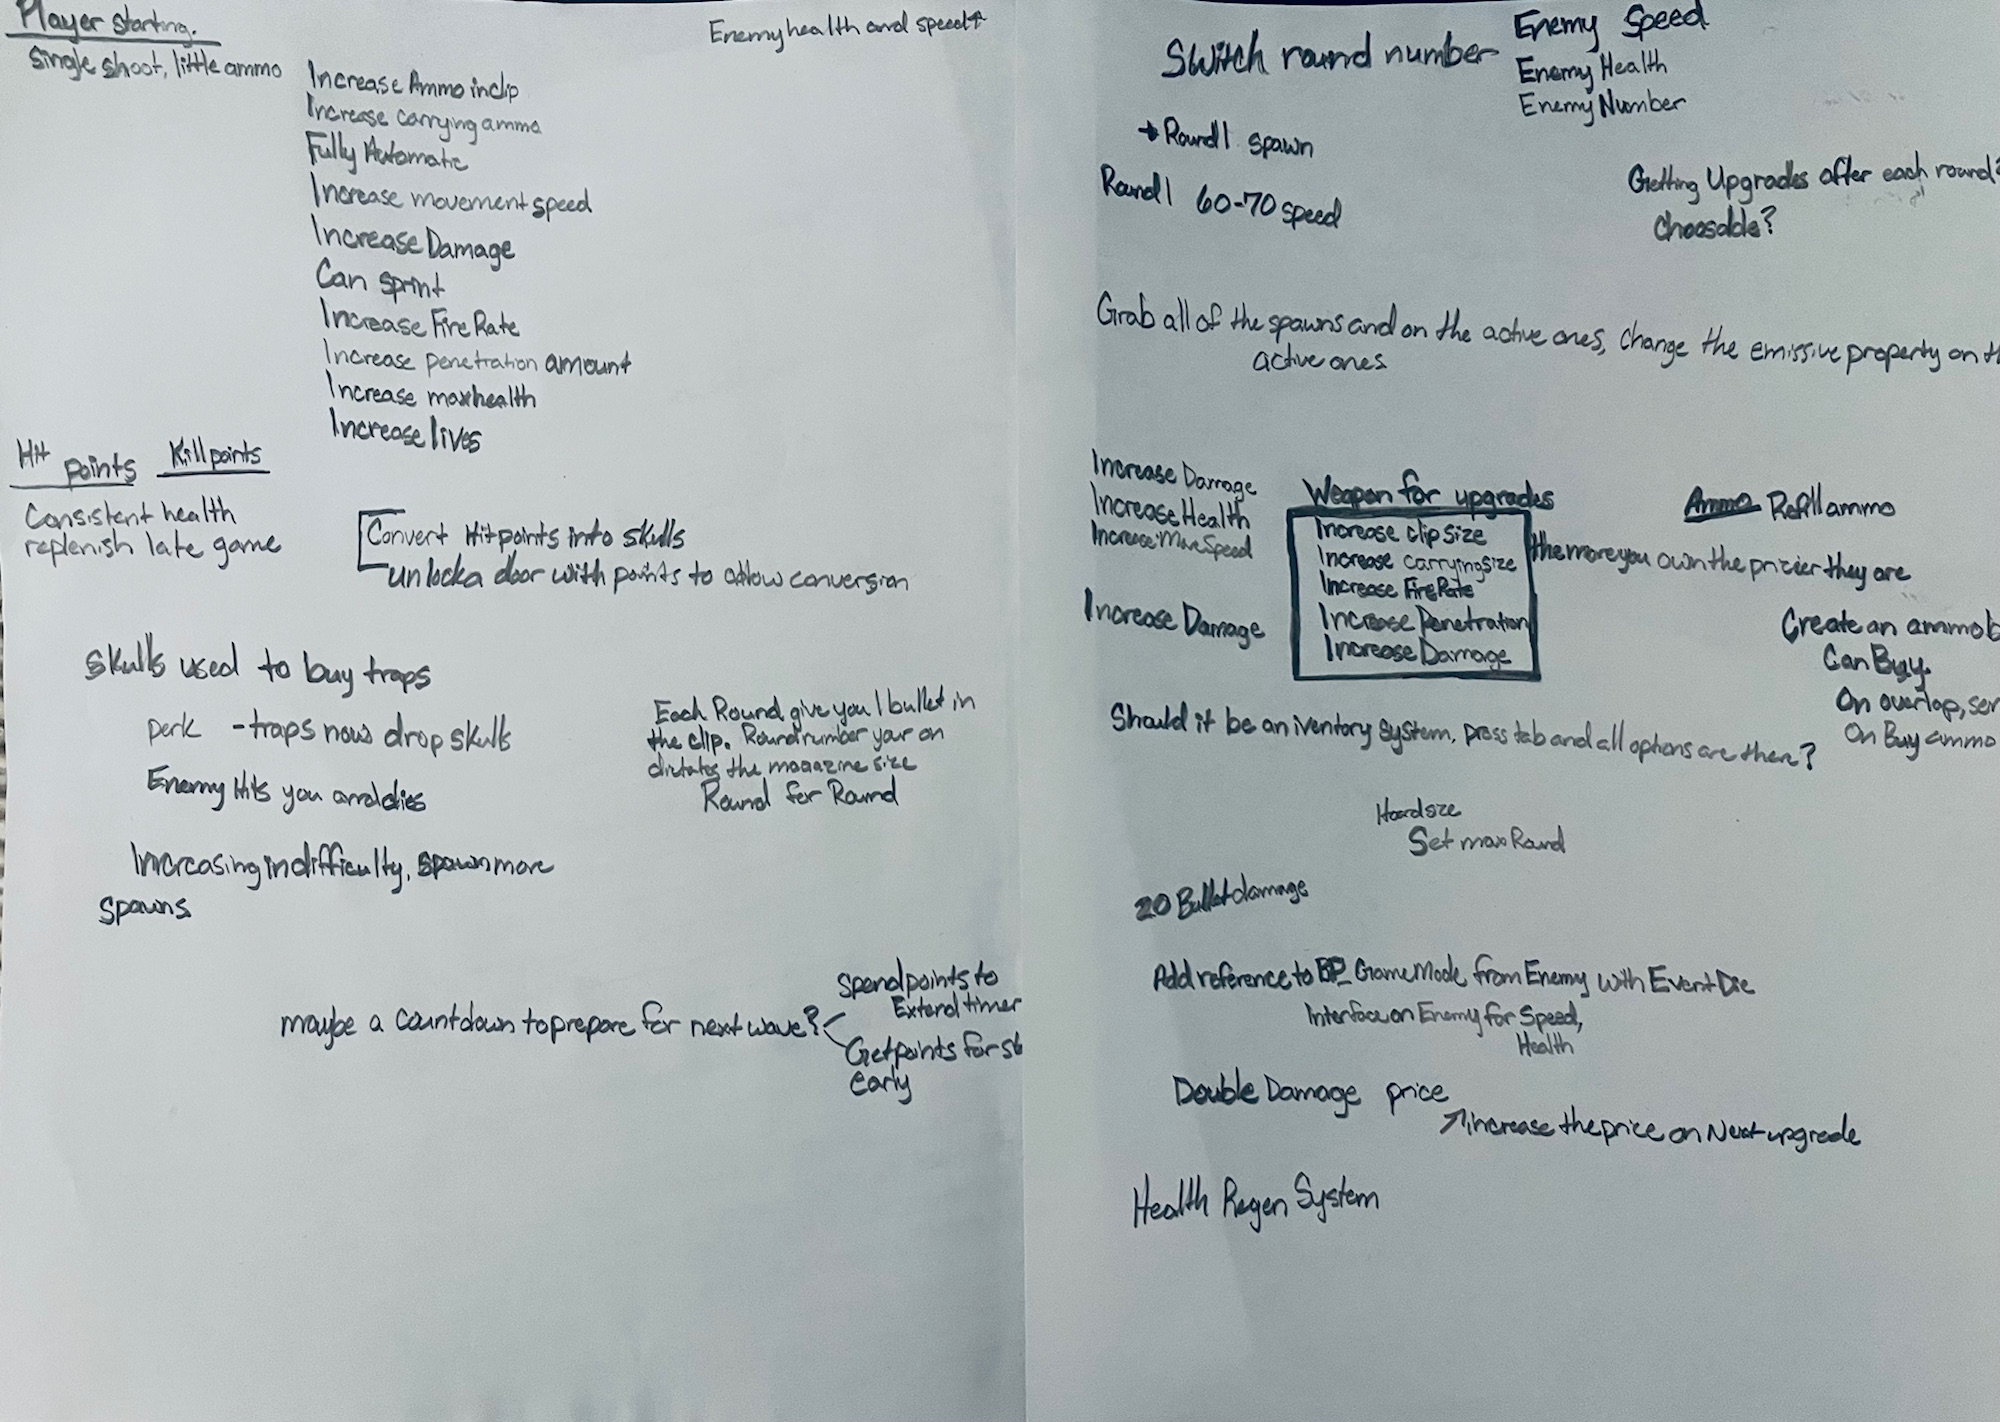 Player starting.
Single shoot, little ammo
Enemy health and speed↑
Increase Ammo in clip
Increase carrying ammo
Fully Automatic
Increase movement speed
Increase Damage
Can sprint
Increase Fire Rate
Increase penetration amount
Increase max health
Increase lives
Hit points
Kill points
Consistent health
replenish late game
Convert Hit points into skulls
unlock a door with points to allow conversion
Skulls used to buy traps
perk - traps now drop skulls
Enemy Hits you and dies
Increasing in difficulty, spawn more
spawns
Each Round give you 1 bullet in
the clip. Round number your on
dictates the magazine size
Round for Round
maybe a countdown to prepare for next wave?
Spend points to
Extend timer
Get points for
early
Switch round number
Enemy Speed
Enemy Health
Enemy Number
→ Round 1 spawn
Round 1 60-70 speed
Getting Upgrades after each round?
Choosable?
Grab all of the spawns and on the active ones, change the emissive property on
active ones
Increase Damage
Increase Health
Increase Move Speed
Increase Damage
Weapon for upgrades
Increase clip size
Increase carrying size
Increase Fire Rate
Increase Penetration
Increase Damage
the more you own the pricier they are
Ammo Refill ammo
Create an ammo
Can Buy.
On overlap,
On Buy ammo
Should it be an iventory system, press tab and all options are there?
Hoard size
Set max Round
20 Bullet damage
Add reference to BP_GameMode from Enemy with Event Die
Interface on Enemy for Speed,
Health
Double Damage price
↗ increase the price on Next upgrade
Health Regen System